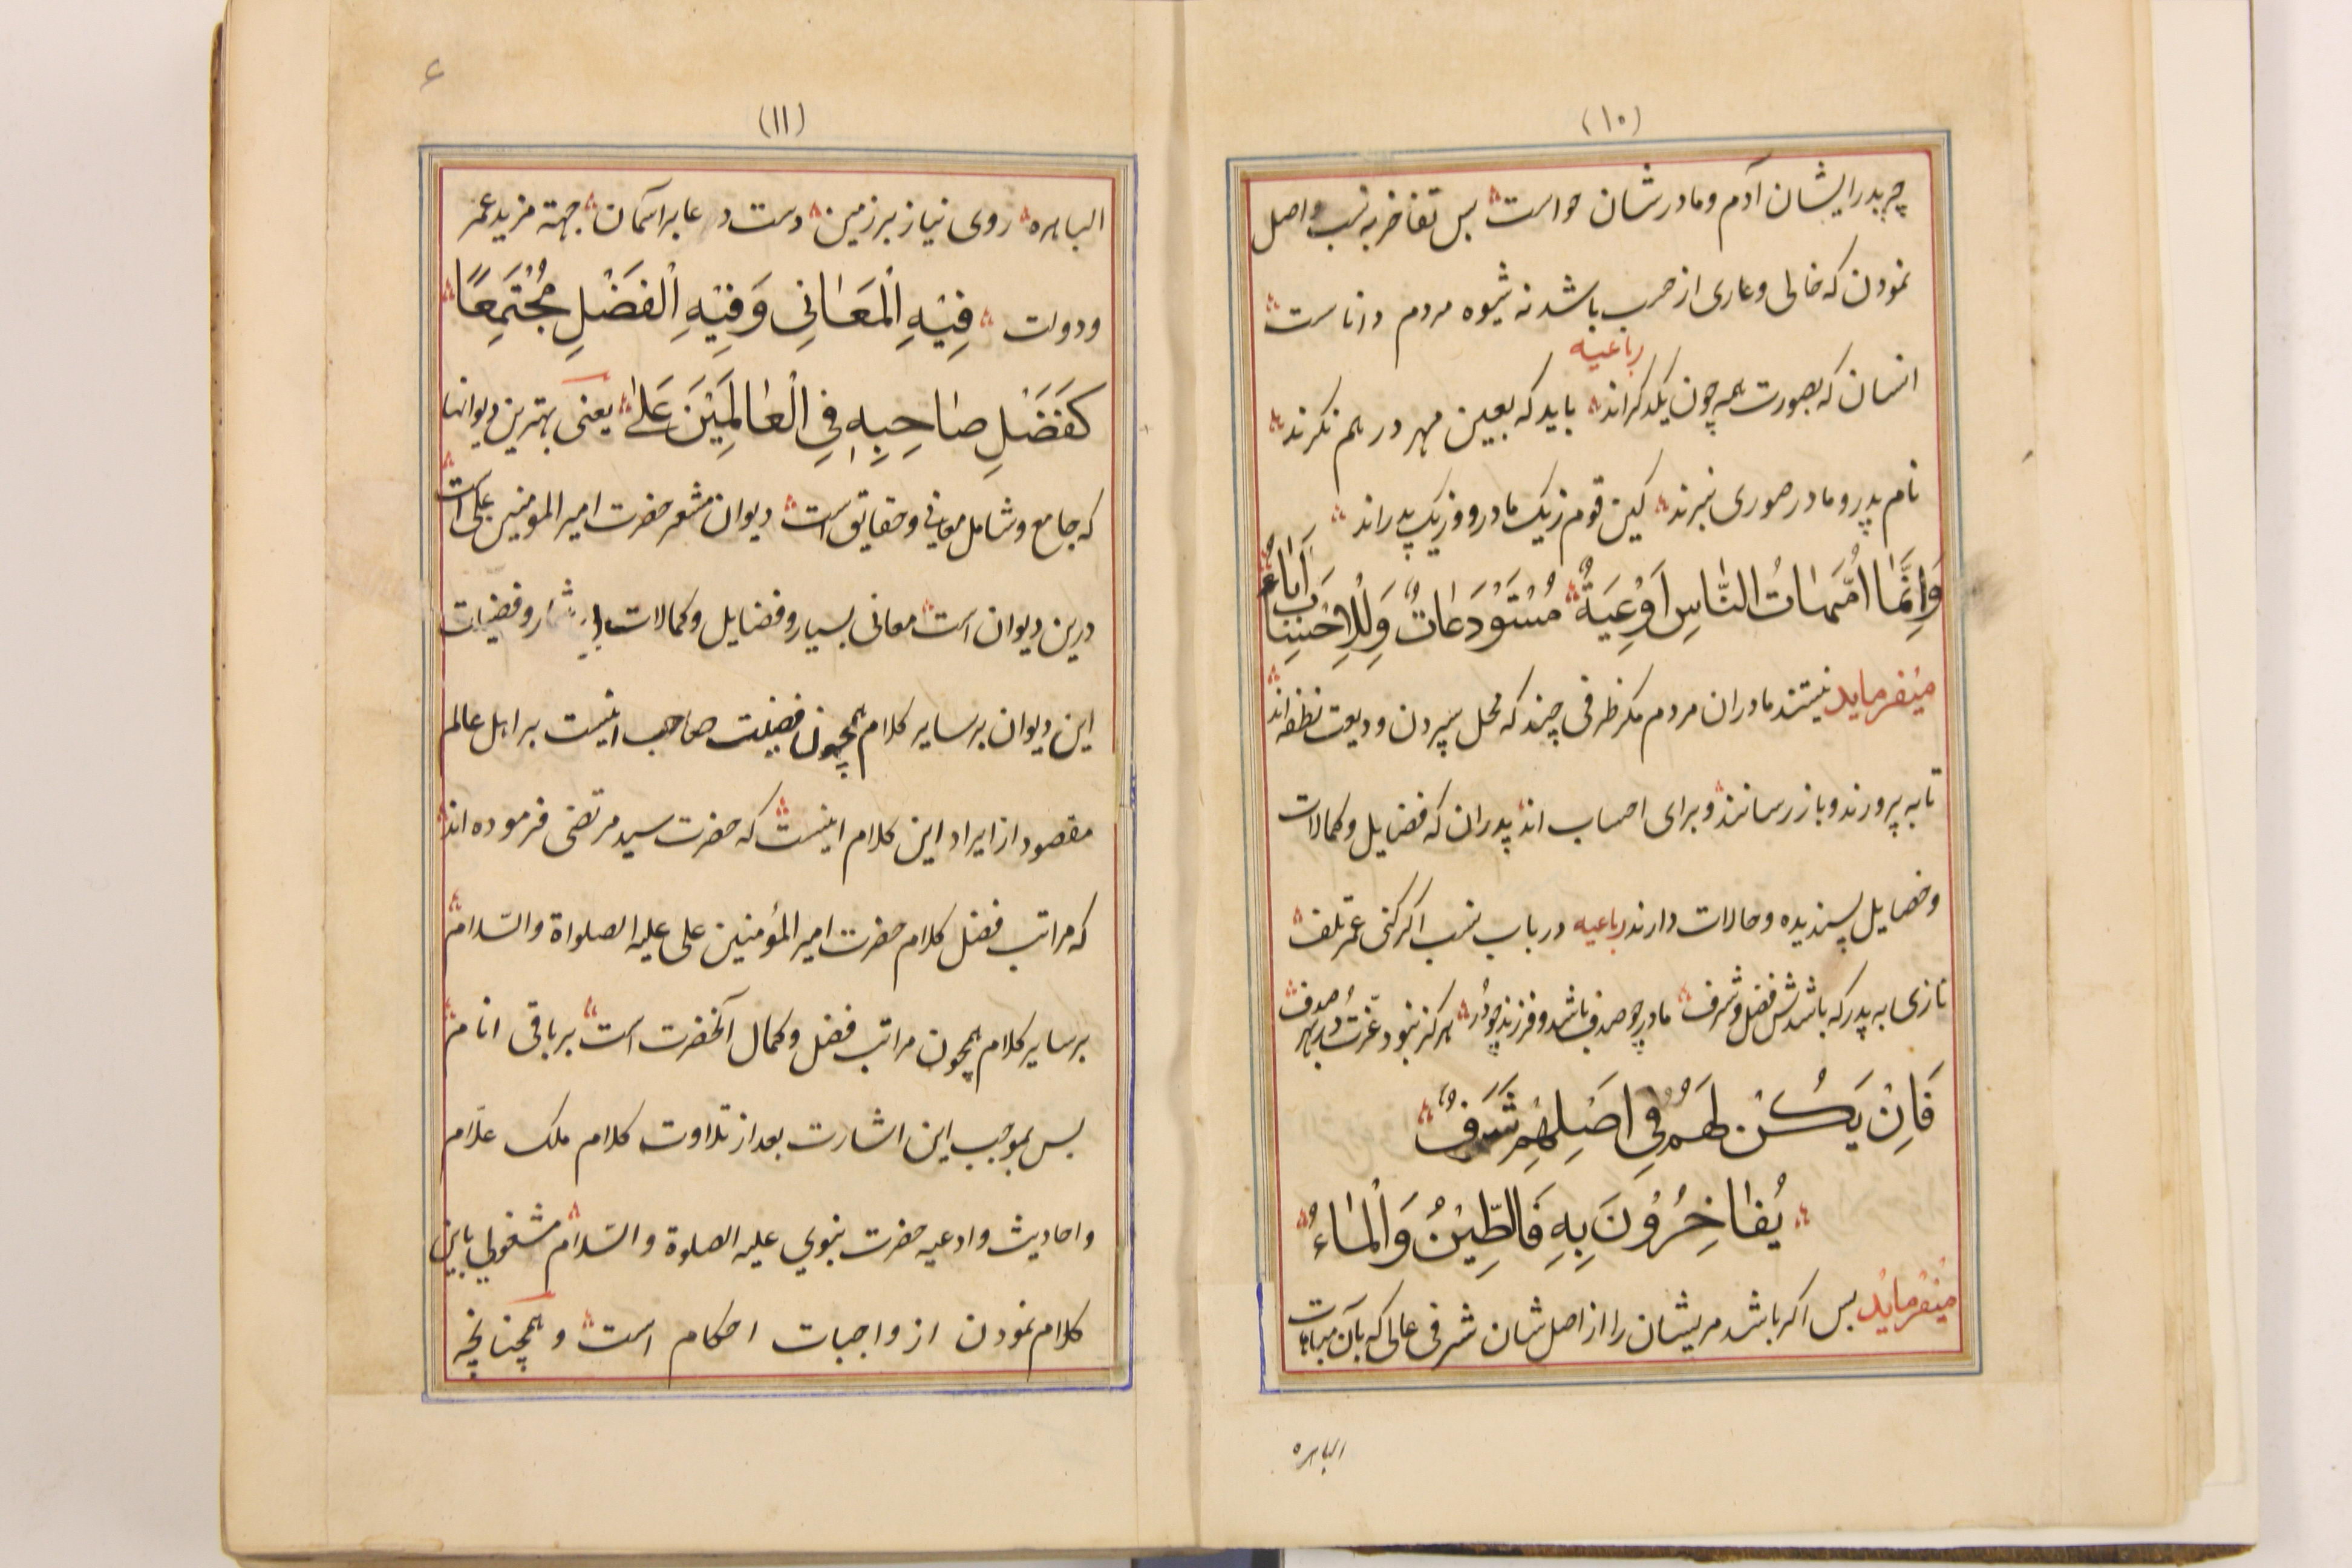 (١٠)
چه پدر ایشان آدم و مادرشان حواست پس تفاخر به نسب و اصل
نمودن که خالی و عاری از حسب باشد نه شیوه مردم داناست
رباعیه
انسان که بصورت همه چون یکدگرند باید که بعین مهر در هم نگرند
نام پدر و مادر صوری نبرند کین قوم زیک مادر و وزیک پدراند
وَاِنَّمٰا اُمَّهٰاتُ النّٰاسِ اَوْعِیَةٌ مُسْتَوْدَعٰاتٌ وَلِلْاَحْسٰابِ اٰبٰاءُ
میفرماید نیستند مادران مردم مگر ظرفی چند که محل سپردن ودیعت نطفه اند
تا به پرورند و باز رسانند و برای احساب اند پدران که فضایل و کمالات
و خصایل پسندیده و حالات دارند رباعیه در باب نسب اگر کنی عمر تلف
نازی به پدر که باشدش فضل و شرف مادر چو صدف باشد و فرزند چو دُر هرگز نبود عزت دُر بهر صدف
فَاِنْ یَکُنْ لَهُمْ فِی اَصْلِهِمْ شَرَفٌ
یُفٰاخِرُوْنَ بِهِ فَالطِّیْنُ وَالْمٰاءُ
میفرماید پس اگر باشد مریشان را از اصل شان شرفی عالی که بآن مباهات
الباهره
(١١)
الباهره روی نیاز بر زمین دست دعا بر آسمان جهة مزید عمر
و دولت فِیْهِ الْمَعَانِی وَفِیْهِ الْفَضْلِ مُجْتَمِعًا
کَفَضْلِ صٰاحِبِهِ فِی الْعٰالَمِیْنَ عَلٰی یعنی بهترین دیوانها
که جامع و شامل معانی و حقایق است دیوان شعر حضرت امیر المومنین علی است
درین دیوان است معانی بسیار و فضایل و کمالات بیشمار و فضیلت
این دیوان بر سایر کلام همچون فضیلت صاحب اینست بر اهل عالم
مقصود از ایراد این کلام اینست که حضرت سید مرتضی فرموده اند
که مراتب فضل کلام حضرت امیر المؤمنین علی علیه الصلواة والسّلام
بر سایر کلام همچون مراتب فضل و کمال آنحضرت است بر باقی انام
پس بموجب این اشارت بعد از تلاوت کلام ملک علّام
و احادیث و ادعیه حضرت نبوی علیه الصلوة والسّلام مشغولی باین
کلام نمودن از واجبات احکام است و همچنانچه